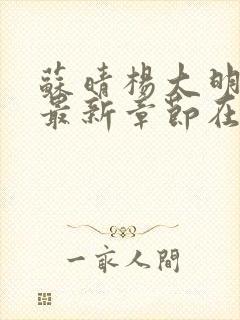 蘇晴楊大明
最新章節在
一家人間